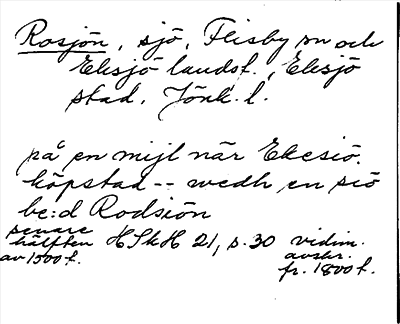 Rosjön, sjö, Flisby sn och
Eksjö landsf., Eksjö
stad. Jönk. l.
på en mijl när Ekesiö.
köpstad -- wedh en siö
be:d Rodsiön
senare
hälften HSkH 21, s. 30 vidim.
av 1500 t. avskr.
fr. 1800 t.